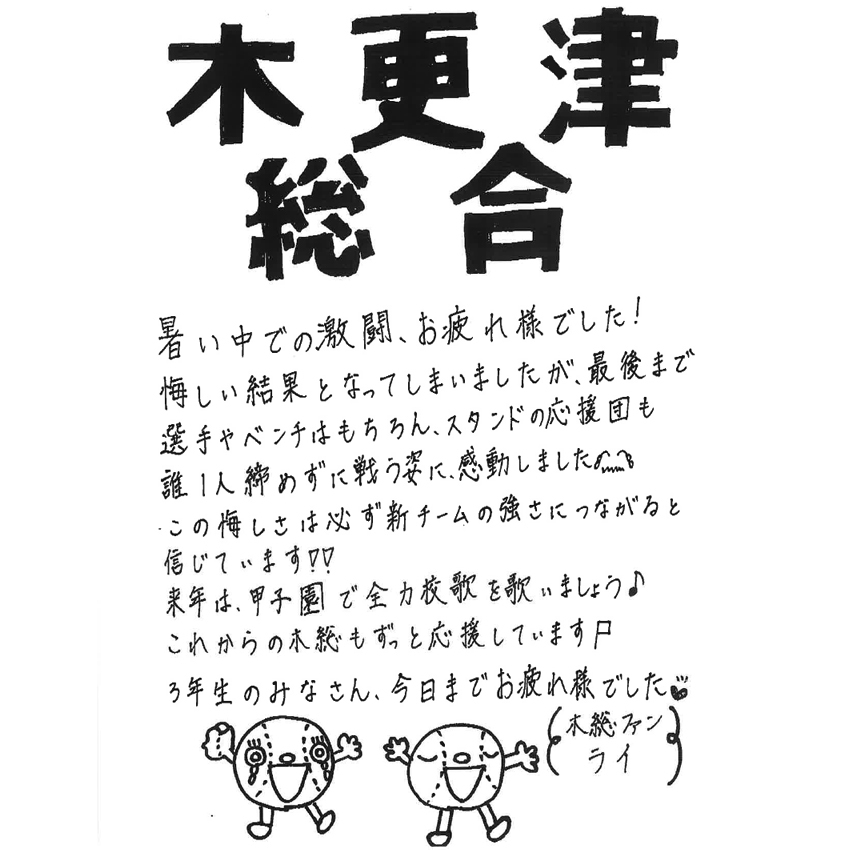 木更津
総合
暑い中での激闘、お疲れ様でした!
悔しい結果となってしまいましたが、最後まで
選手やベンチはもちろん、スタンドの応援団も
誰1人締めずに戦う姿に、感動しました
この悔しさは必ず新チームの強さにつながると
信じています!!
来年は、甲子園で全力校歌を歌いましょう♪
これからの木総もずっと応援しています
3年生のみなさん、今日までお疲れ様でした
木総ファン
ライ